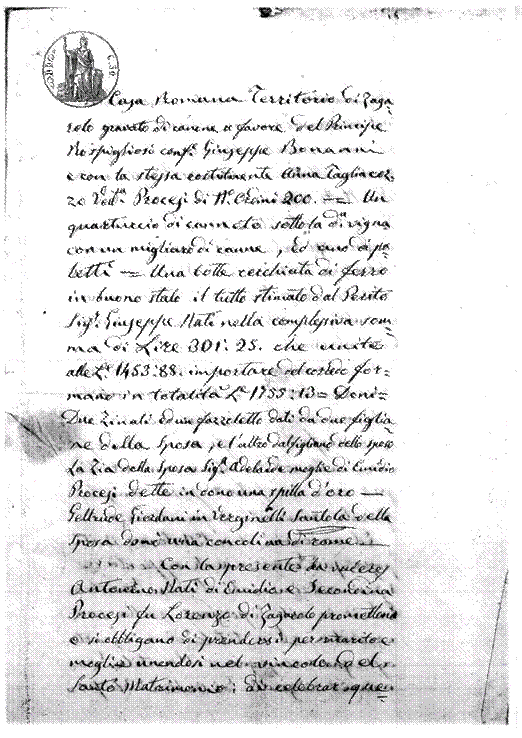 Casa Romana Territorio di Zaga=
rolo gravato di canone a favore del Principe
Rospigliosi conf.e Giuseppe Bonanni
e con la stessa costituente Anna Tagliacoz=
zo Ved.a Procesi di N.o Ordini 200. — Un
quartuccio di canneto sotto la d.a vigna
con un migliaro di canne, ed uno di pa=
letti — Una botte cerchiata di ferro
in buono stato il tutto stimato dal Perito
Sig.r Giuseppe Nati nella complessiva som=
ma di Lire 301:25. che unite
alle L.e 1453:88. importare del corredo for=
mano in totalità L.e 1755:13 = Doni =
Due Zinali ed un fazzoletto dati da due figlia=
ne della Sposa, e l'altro dal figliano dello sposo
La Zia della Sposa Sig.a Adelaide moglie di Emidio
Procesi dette in dono una spilla d'oro —
Geltrude Giordani in Verginelli Santola della
Sposa donò una concolina di rame.
Con la presente da valere
Antonino Nati di Emidio e Secondina
Procesi fu Lorenzo di Zagarolo promettono
e si obbligano di prendersi per marito e
moglie unendosi nel vincolo del
Santo Matrimonio; di celebrar que=